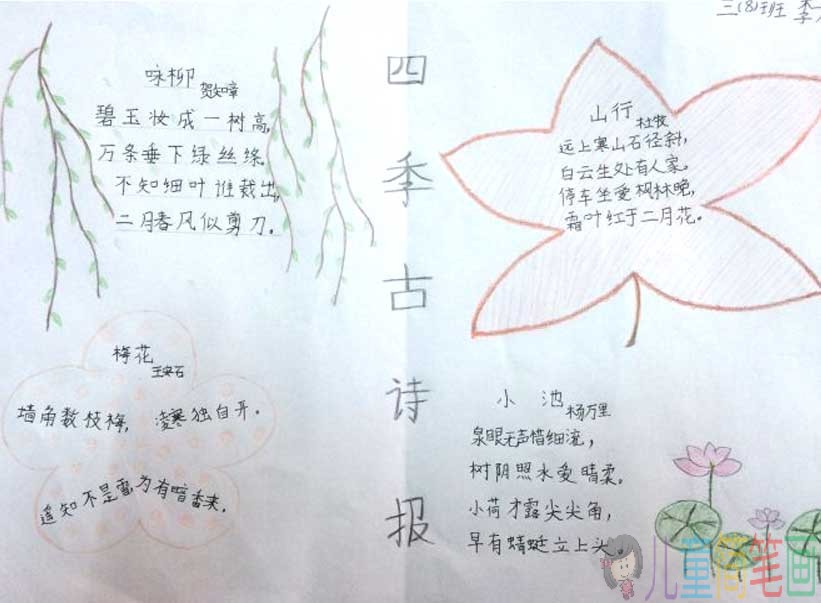 三(8)班 李
四季古诗报
咏柳
贺知章
碧玉妆成一树高,
万条垂下绿丝绦.
不知细叶谁裁出,
二月春风似剪刀.
山行
杜牧
远上寒山石径斜,
白云生处有人家。
停车坐爱枫林晚,
霜叶红于二月花。
梅花
王安石
墙角数枝梅, 凌寒独自开.
遥知不是雪,为有暗香来.
小池
杨万里
泉眼无声惜细流,
树阴照水爱晴柔.
小荷才露尖尖角,
早有蜻蜓立上头。
儿童简笔画